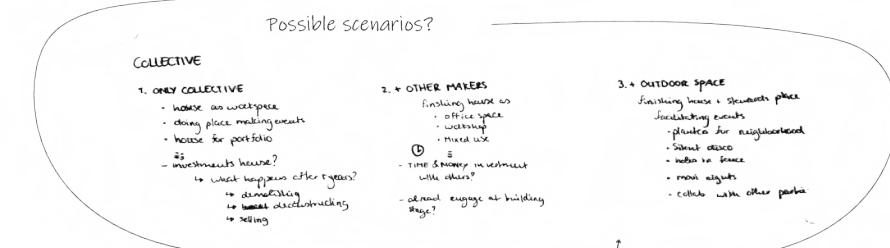 Possible scenarios?
COLLECTIVE
1. ONLY COLLECTIVE
• house as workspace
• doing place making events
• house for portfolio
- investments house?
↳ what happens after years?
↳ demolishing
↳ deconstructing
↳ selling
2. + OTHER MAKERS
finishing house as
• office space
• workshop
• Mixed use
- TIME & MONEY investment
with others?
- already engage at building
stage?
3. + OUTDOOR SPACE
finishing house + stewards place
facilitating events
• planten for neighborhood
• Silent disco
• holes in fence
• movi nights
• collab with other